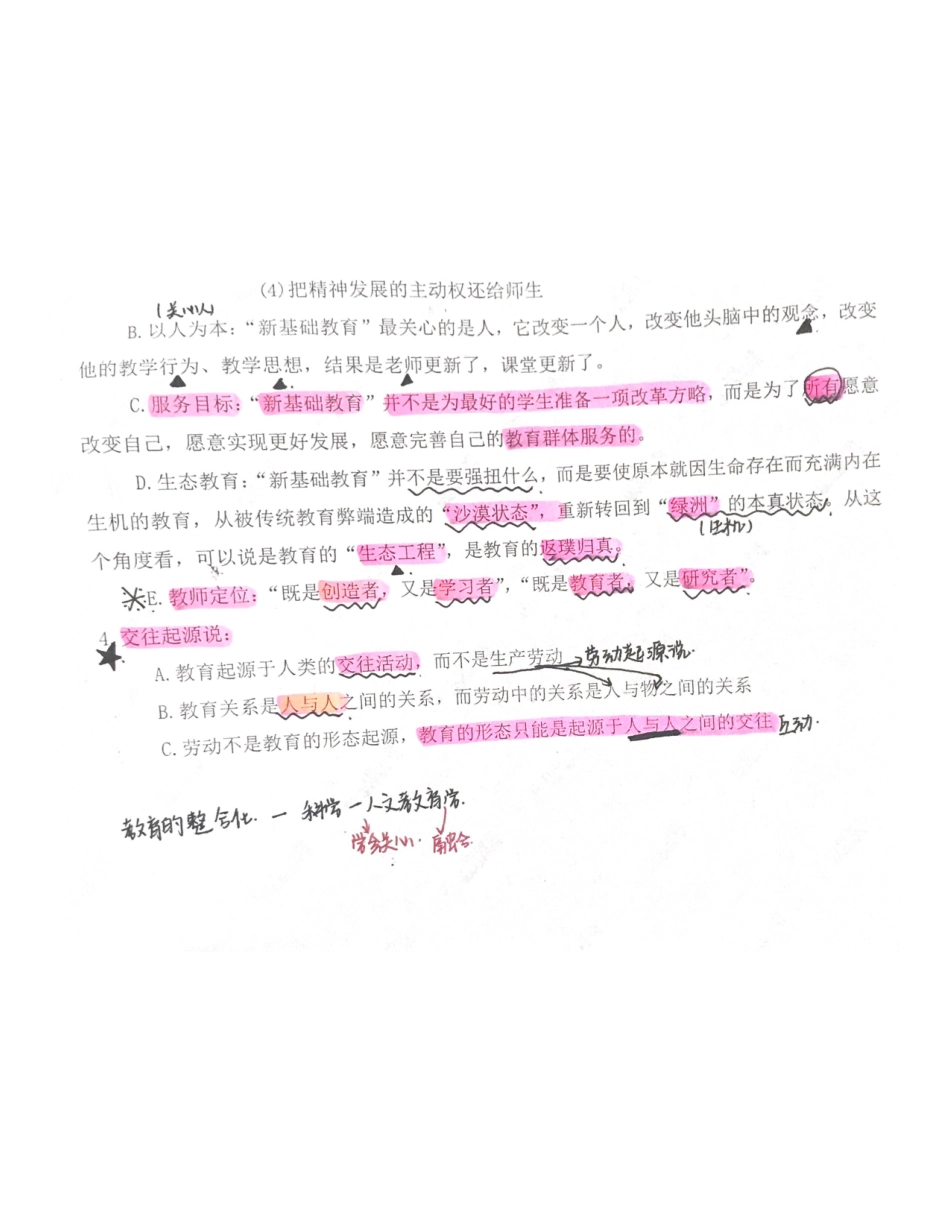 (4)把精神发展的主动权还给师生
(关心人)
B.以人为本：“新基础教育”最关心的是人，它改变一个人，改变他头脑中的观念，改变
他的教学行为、教学思想，结果是老师更新了，课堂更新了。
C.服务目标：“新基础教育”并不是为最好的学生准备一项改革方略，而是为了所有愿意
改变自己，愿意实现更好发展，愿意完善自己的教育群体服务的。
D.生态教育：“新基础教育”并不是要强扭什么，而是要使原本就因生命存在而充满内在
生机的教育，从被传统教育弊端造成的“沙漠状态”，重新转回到“绿洲”的本真状态。从这
(生机)
个角度看，可以说是教育的“生态工程”，是教育的返璞归真。
E.教师定位：“既是创造者，又是学习者”，“既是教育者，又是研究者”。
4.交往起源说：
A.教育起源于人类的交往活动，而不是生产劳动→劳动起源说.
B.教育关系是人与人之间的关系，而劳动中的关系是人与物之间的关系
C.劳动不是教育的形态起源，教育的形态只能是起源于人与人之间的交往互动.
教育的整合化.—科学—人文教育学.
学会关心.融合.